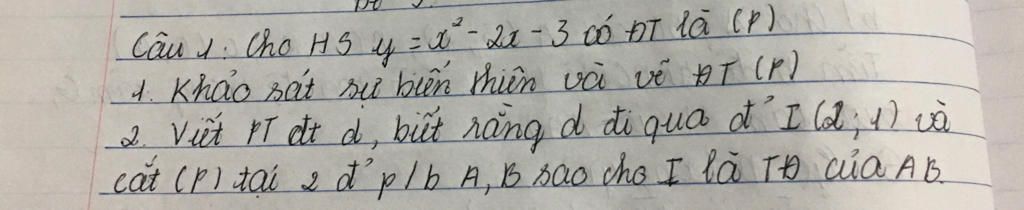 Câu 1: Cho HS y = x² - 2x - 3 có ĐT là (P)
1. Khảo sát sự biến thiên và vẽ ĐT (P)
2. Viết PT đt d, biết rằng d đi qua đ' I (2; 1) và
cắt (P) tại 2 đ' p/b A, B sao cho I là TĐ của AB.